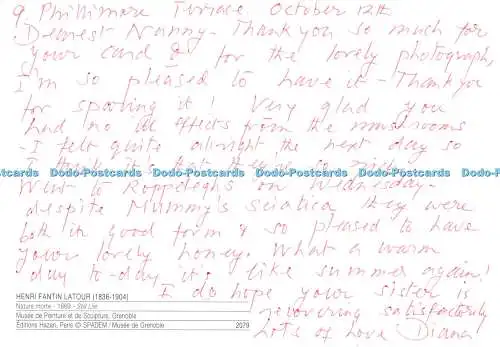 9 Phillimore Terrace October 12th
Dearest Nanny - Thank you so much for
your card & for the lovely photograph,
I'm so pleased to have it - Thank you
for sparing it! Very glad you
had no ill effects from the mushrooms
- I felt quite alright the next day so
I think it's that they're so rich
Dodo-Postcards Dodo-Postcards Dodo-Postcards Dodo-Postcards Dodo-Postcards
Went to on Wednesday -
despite Mummy's sciatica they were
both in good form & so pleased to have
your lovely honey. What a warm
day to-day it is like summer again!
I do hope your sister is
recovering satisfactorily
Lots of love Diana
HENRI FANTIN LATOUR (1836-1904)
Nature morte - 1869 - Still Life
Musée de Peinture et de Sculpture, Grenoble
Éditions Hazan, Paris © SPADEM / Musée de Grenoble 2079